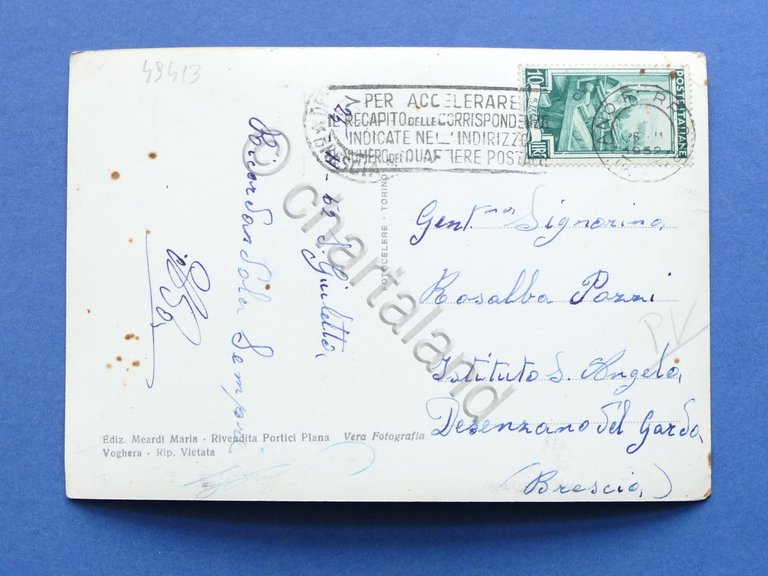 49413
PER ACCELERARE
IL RECAPITO DELLE CORRISPONDENZE
INDICATE NELL'INDIRIZZO
NUMERO DEL QUARTIERE POSTALE
10
POSTE ITALIANE
LIRE
Gent.ma Signorina
Rosalba Pozzi
Istituto S. Angela
Desenzano del Garda
(Brescia)
PV
S. Giuletta
Ricordandola Sempre
FOTOCELERE - TORINO
Ediz. Meardi Maria - Rivendita Portici Piana Vera Fotografia
Voghera - Rip. Vietata
© chartaland